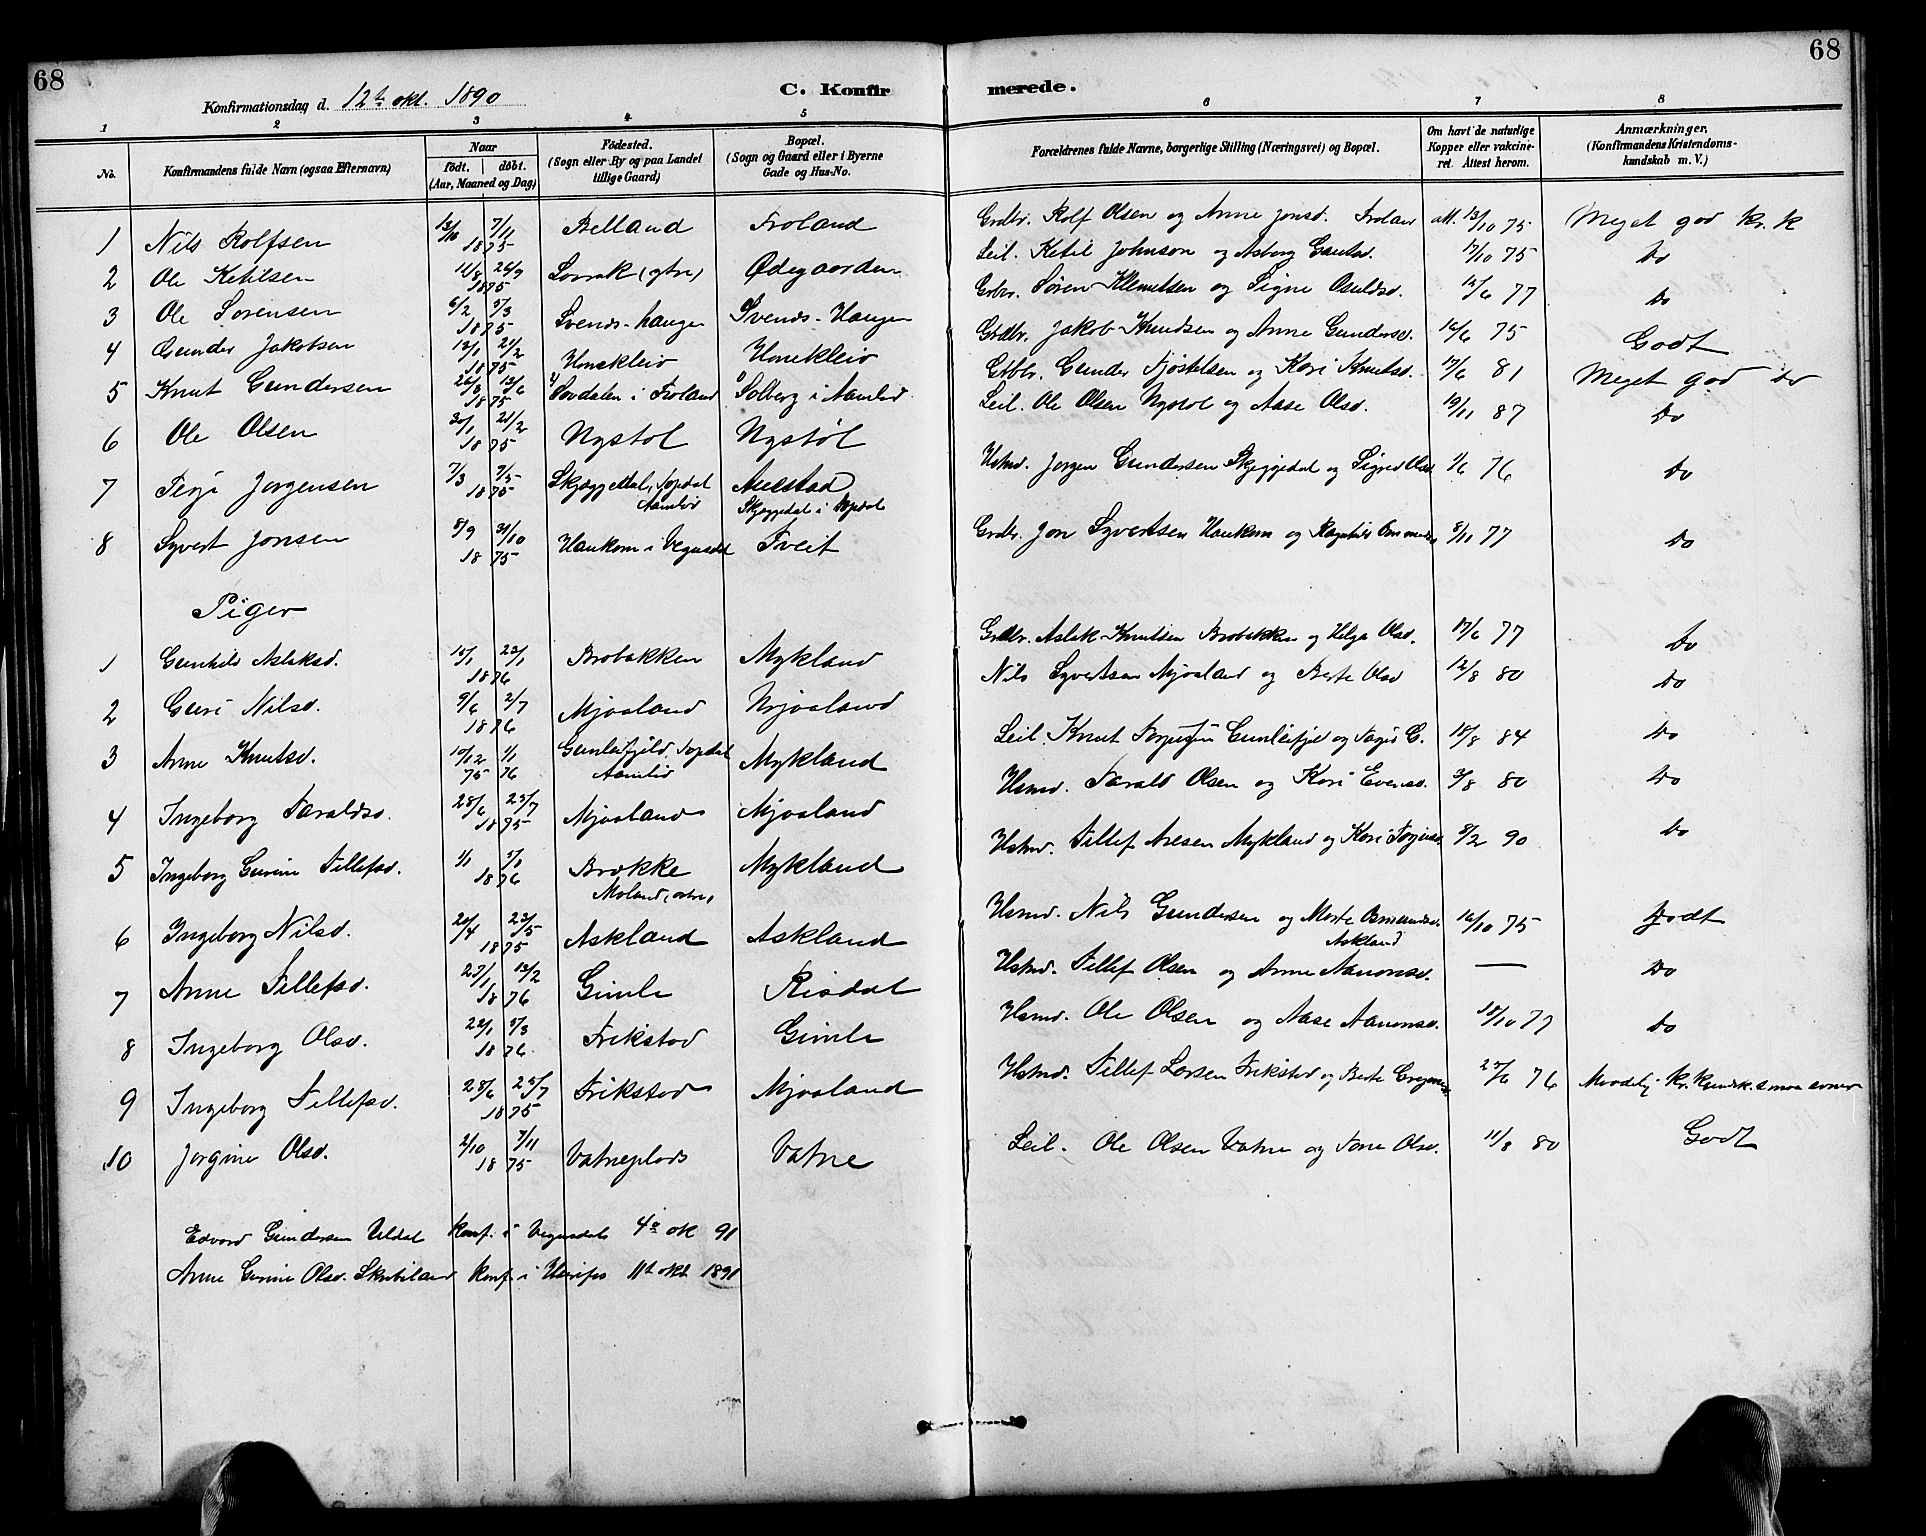 68
68
Konfirmationsdag d. 12te okt. 1890
C. Konfirmerede.
1 2 3 4 5 6 7 8
No.
Konfirmandens fulde Navn (ogsaa Efternavn)
Naar
født. døbt.
(Aar, Maaned og Dag)
Fødested.
(Sogn eller By og paa Landet
tillige Gaard)
Bopæl.
(Sogn og Gaard eller i Byerne
Gade og Hus-No.
Forældrenes fulde Navne, borgerlige Stilling (Næringsvei) og Bopæl.
Om havt de naturlige
Kopper eller vakcine-
ret. Attest herom.
Anmærkninger,
(Konfirmandens Kristendoms-
kundskab m. V.)
1 Nils Rolfsen 13/10 7/11 1875 Belland Froland Grdbr. Rolf Olsen og Anne Jonsd. Froland att. 13/10 75 Meget god kr. k
2 Ole Ketilsen 11/8 26/9 1875 (ytre) Ødegaarden Leil. Ketil Johnson og Asborg Gautsd. 17/10 75 Do
3 Ole Sørensen 6/2 5/3 1875 Svends-haugen Svends-Haugen Grbr. Søren Klemetsen og Signe Osuldsd. 15/6 77 Do
4 Gunder Jakobsen 12/1 21/2 1875 Hønekleiv Hønekleiv Grdbr. Jakob Knudsen og Anne Gundersd. 16/6 75 Godt
5 Knut Gundersen 26/3 13/6 1875 i Froland Solberg i Aamlid Grbr. Gunder Fjøstelsen og Kari Knutsd. 17/6 81 Meget god Do
6 Ole Olsen 30/1 21/2 1875 Nystøl Nystøl Leil. Ole Olsen Nystøl og Aase Olsd. 19/11 87 Do
7 Terje Jørgensen 7/3 7/5 1875 Skjæggedal, Topdal Aamlid Skjeggedal i Topdal Husmd. Jørgen Gundersen Skjeggedal og Signe Olsd 1/6 76 Do
8 Syvert Jonsen 8/9 31/10 1875 Haukom i Vegusdal Tveit Grdbr. Jon Syvertsen Haukom og Ragnhild 8/11 77 Do
Piger
1 Gunhild Aslaksd. 15/1 23/1 1876 Brobakken Mykland Grdbr. Aslak Knutsen Brobakken og Helga Olsd. 17/6 77 Do
2 Guri Nilsd. 9/6 2/7 1876 Mjoaland Mjoaland Nils Syvertsen Mjoaland og Berte Olsd 12/8 80 Do
3 Anne Knutsd. 10/12 75 1/1 76 Topdal Aamlid Mykland Leil. Knut og G. 18/8 84 Do
4 Ingeborg Taraldsd. 28/6 25/7 1875 Mjoaland Mjoaland Husmd. Tarald Olsen og Kari Evensd. 3/8 80 Do
5 Ingeborg Gurine Tellefsd. 1/1 5/1 1876 Brække Moland, østre Mykland Husmd. Tellef Aresen Mykland og Kari 8/2 90 Do
6 Ingeborg Nilsd. 20/4 23/5 1875 Askland Askland Husmd. Nils Gundersen og Marte Osmundsd. Askland 16/10 75 Godt
7 Anne Tellefsd. 23/1 13/2 1876 Gimle Risdal Husmd. Tellef Olsen og Anne Aanonsd. — Do
8 Ingeborg Olsd. 22/1 5/3 1876 Frikstad Gimle Husmd. Ole Olsen og Aase Aanonsd. 18/10 77 Do
9 Ingeborg Tellefsd. 28/6 25/7 1875 Frikstad Mjoaland Husmd. Tellef Larsen Frikstad og Berte 27/6 76 Maadelig kr. kundsk.
10 Jorgine Olsd. 2/10 7/11 1875 Vatneplads Vatne Leil. Ole Olsen Vatne og Tone Olsd. 11/8 80 Godt
Edvard Gundersen Uldal konf. i Vegusdal 4de ok 91
Anne Gurine Olsd. Skribiland konf. i Herefos 11te okt 1891